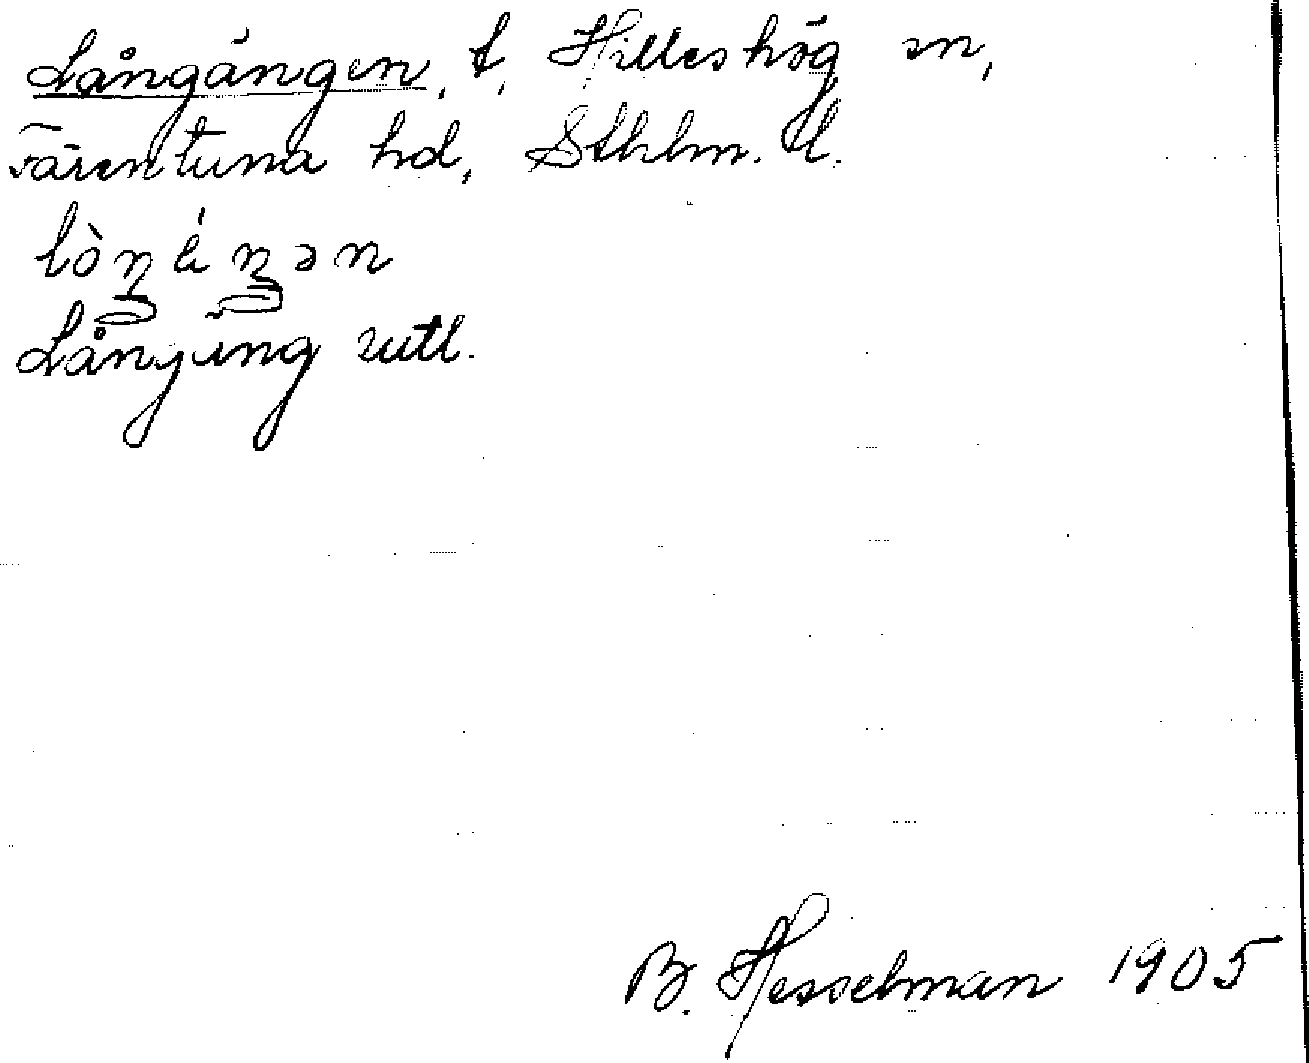 Långängen, t, Hilleshög sn,
Färentuna hd, Sthlm. l.
lòŋ é ŋ ə n
Långäng uttl.
B. Hesselman 1905